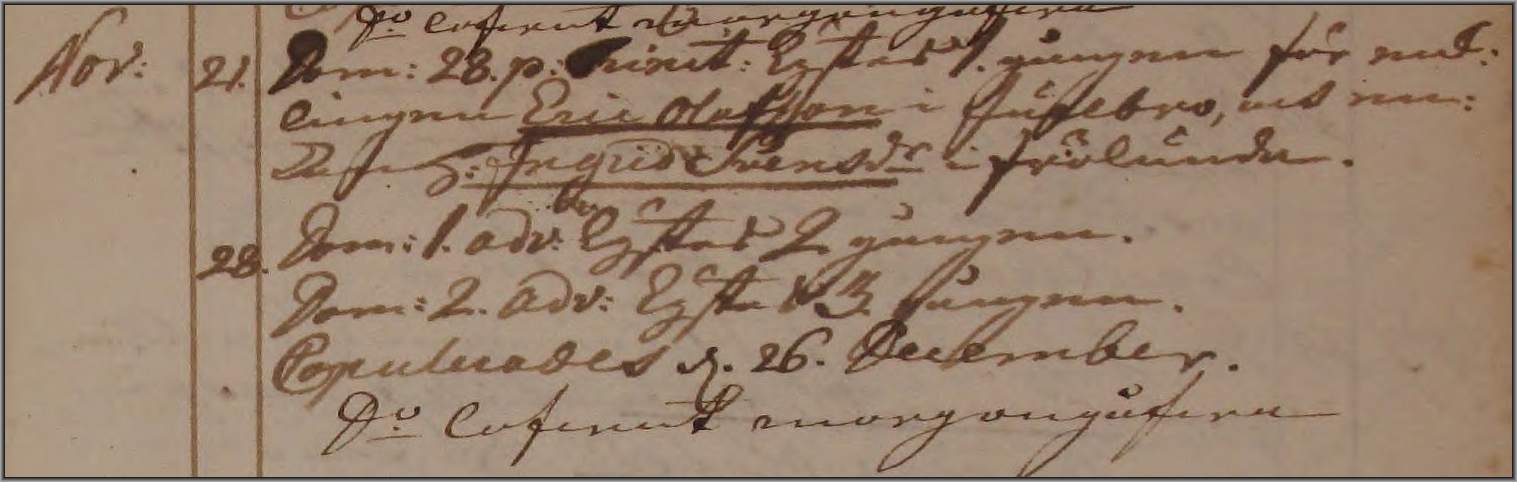 Do lofvent morgongåfva
Nov: 21. Dom: 23. p: Trinit: Lystes 1. gången för ynk:
lingen Eric Olofsson i Husebro, och
Ingrid Svensdr i Frölunda.
28. Dom: 1. adv: Lystes 2 gången.
Dom: 2. adv: Lystes 3. gången.
Copulerades d. 26. December.
Do morgongåfva